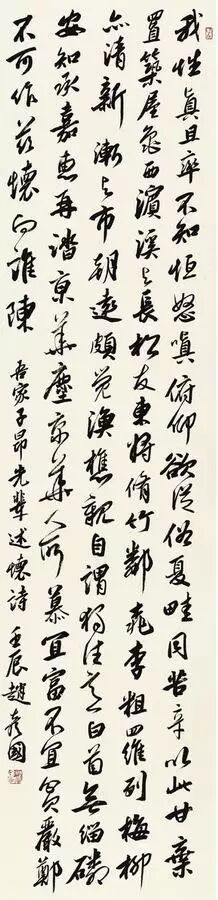 我性真且率不知恒怒嗔俯仰欲從俗夏畦同苦辛以此甘棄
置築屋龜西濱溪与長松友東將脩竹鄰桃李粗羅列梅柳
亦清新漸与市朝遠頗覺漁樵親自謂獨往白首無緇磷
安知承嘉惠再踏京華塵京華人所慕宜富不宜貧嚴鄭
不可作茲懷向誰陳
吾家子昂先輩述懷詩 壬辰趙彥國